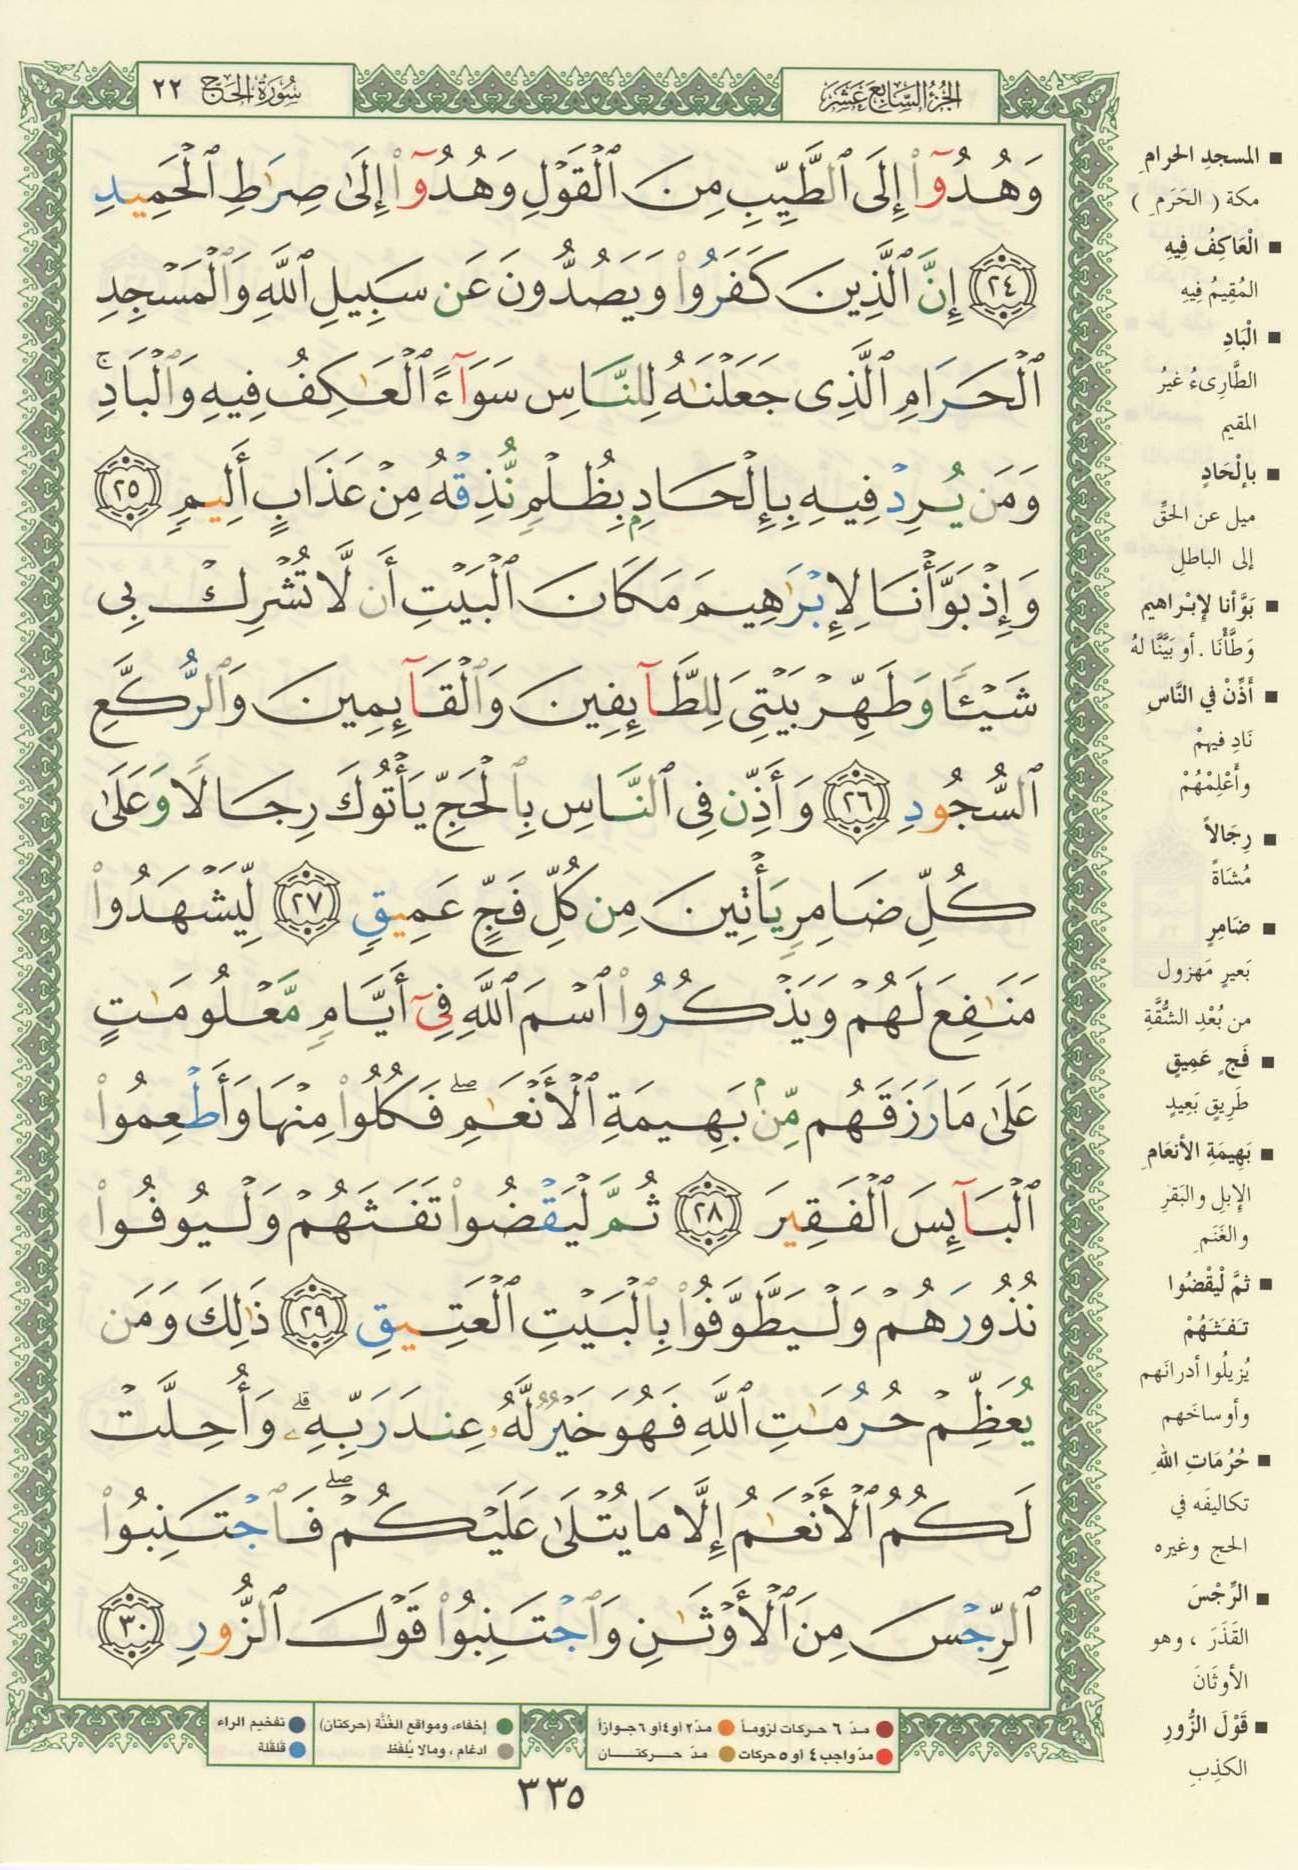 سُورَةُ الحَجّ ٢٢
الجُزءُ السَّابِعَ عَشَرَ
وَهُدُوٓا۟ إِلَى ٱلطَّيِّبِ مِنَ ٱلْقَوْلِ وَهُدُوٓا۟ إِلَىٰ صِرَٰطِ ٱلْحَمِيدِ
٢٤ إِنَّ ٱلَّذِينَ كَفَرُوا۟ وَيَصُدُّونَ عَن سَبِيلِ ٱللَّهِ وَٱلْمَسْجِدِ
ٱلْحَرَامِ ٱلَّذِى جَعَلْنَٰهُ لِلنَّاسِ سَوَآءً ٱلْعَٰكِفُ فِيهِ وَٱلْبَادِ ۚ
وَمَن يُرِدْ فِيهِ بِإِلْحَادٍۭ بِظُلْمٍ نُّذِقْهُ مِنْ عَذَابٍ أَلِيمٍ ٢٥
وَإِذْ بَوَّأْنَا لِإِبْرَٰهِيمَ مَكَانَ ٱلْبَيْتِ أَن لَّا تُشْرِكْ بِى
شَيْـًٔا وَطَهِّرْ بَيْتِىَ لِلطَّآئِفِينَ وَٱلْقَآئِمِينَ وَٱلرُّكَّعِ
ٱلسُّجُودِ ٢٦ وَأَذِّن فِى ٱلنَّاسِ بِٱلْحَجِّ يَأْتُوكَ رِجَالًا وَعَلَىٰ
كُلِّ ضَامِرٍ يَأْتِينَ مِن كُلِّ فَجٍّ عَمِيقٍ ٢٧ لِّيَشْهَدُوا۟
مَنَٰفِعَ لَهُمْ وَيَذْكُرُوا۟ ٱسْمَ ٱللَّهِ فِىٓ أَيَّامٍ مَّعْلُومَٰتٍ
عَلَىٰ مَا رَزَقَهُم مِّنۢ بَهِيمَةِ ٱلْأَنْعَٰمِ ۖ فَكُلُوا۟ مِنْهَا وَأَطْعِمُوا۟
ٱلْبَآئِسَ ٱلْفَقِيرَ ٢٨ ثُمَّ لْيَقْضُوا۟ تَفَثَهُمْ وَلْيُوفُوا۟
نُذُورَهُمْ وَلْيَطَّوَّفُوا۟ بِٱلْبَيْتِ ٱلْعَتِيقِ ٢٩ ذَٰلِكَ وَمَن
يُعَظِّمْ حُرُمَٰتِ ٱللَّهِ فَهُوَ خَيْرٌ لَّهُۥ عِندَ رَبِّهِۦ ۗ وَأُحِلَّتْ
لَكُمُ ٱلْأَنْعَٰمُ إِلَّا مَا يُتْلَىٰ عَلَيْكُمْ ۖ فَٱجْتَنِبُوا۟
ٱلرِّجْسَ مِنَ ٱلْأَوْثَٰنِ وَٱجْتَنِبُوا۟ قَوْلَ ٱلزُّورِ ٣٠
المسجدِ الحرامِ
مكة ( الحَرَمِ )
الْعَاكِفُ فِيهِ
المُقِيمُ فِيهِ
الْبَادِ
الطَّارِىءُ غيرُ
المقيم
بإلْحَادٍ
ميل عن الحَقِّ
إلى الباطلِ
بَوَّأنا لإبْراهيم
وَطَّأْنَا . أو بَيَّنَّا لهُ
أَذِّنْ في النَّاسِ
نَادِ فيهمْ
وأَعْلِمْهُمْ
رِجَالاً
مُشَاةً
ضَامِرٍ
بَعيرٍ مَهزول
من بُعْدِ الشُّقَّةِ
فَجٍّ عَمِيقٍ
طَرِيقٍ بَعِيدٍ
بَهِيمَةِ الأنعَامِ
الإبلِ والبَقرِ
والغَنَمِ
ثمَّ لْيقْضُوا
تفَثهُمْ
يُزيلُوا أدرانَهم
وأوساخَهم
حُرُمَاتِ اللهِ
تكاليفَه في
الحج وغيره
الرِّجْسَ
القَذَرَ ، وهو
الأوثَانَ
قَوْلَ الزُّورِ
الكذِبِ
مدّ ٦ حركات لزوماً مدّ٢ أو٤أو ٦جوازاً
مدّ واجب٤ أو ٥ حركات مدّ حركتان
إخفاء، ومواقع الغُنَّة (حركتان) تفخيم الراء
ادغام ، ومالا يُلفَظ قلقلة
٣٣٥